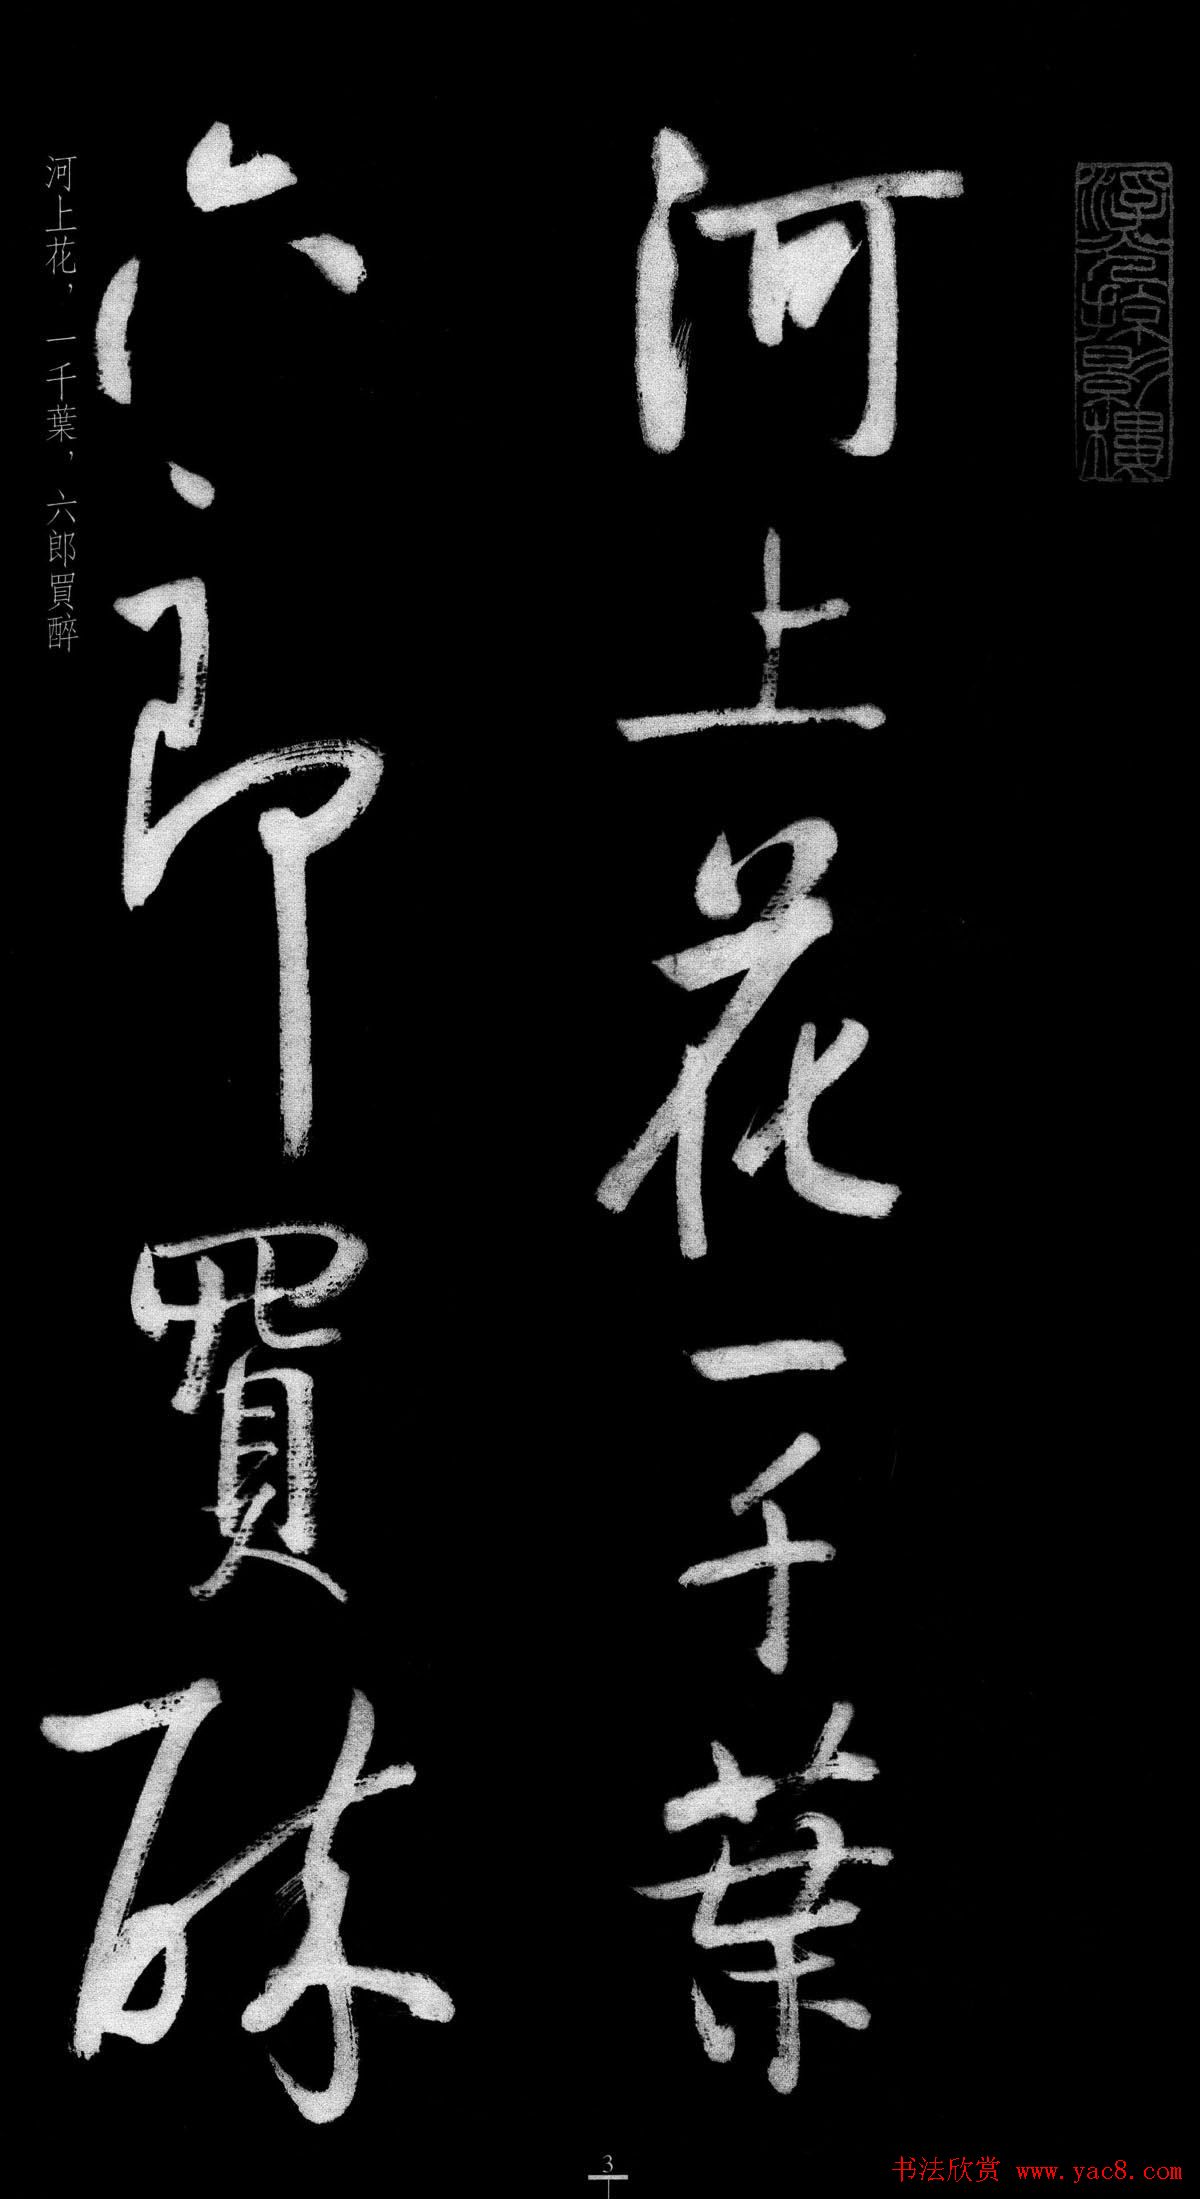 浮光掠影樓
河上花一千葉
六郎買醉
河上花，一千葉，六郎買醉
3
书法欣赏 www.yac8.com